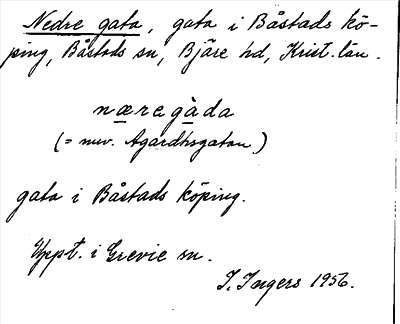 Nedre gata, gata i Båstads kö-
ping, Båstads sn, Bjäre hd, Krist. län.
næregàda
(= nuv. Agardhsgatan)
gata i Båstads köping.
Uppt. i Grevie sn.
I. Ingers 1956.